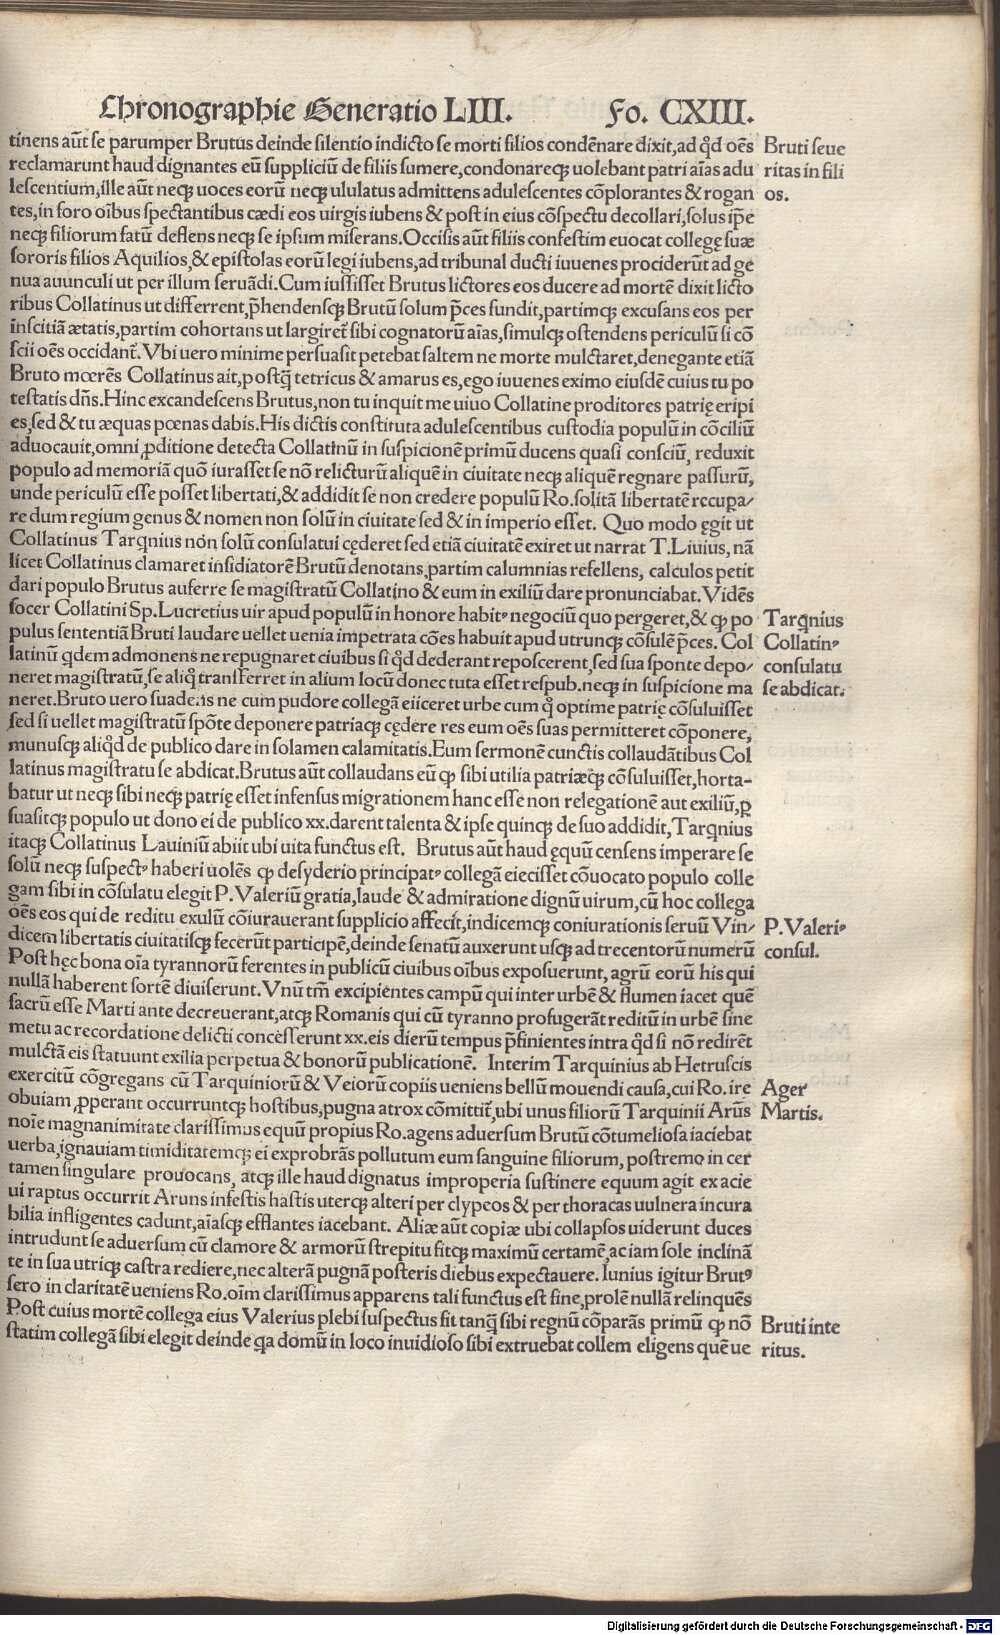 Chronographie Generatio LIII. Fo. CXIII.
tinens aūt se parumper Brutus deinde silentio indicto se morti filios condēnare dixit, ad q̊d oēs
reclamarunt haud dignantes eū suppliciū de filiis sumere, condonareq; uolebant patri aīas adu
lescentium, ille aūt neq; uoces eorū neq; ululatus admittens adulescentes cōplorantes & rogan
tes, in foro oībus spectantibus cædi eos uirgis iubens & post in eius cōspectu decollari, solus ip̄e
neq; filiorum fatū deflens neq; se ipsum miserans. Occisis aūt filiis confestim euocat collegę suæ
sororis filios Aquilios, & epistolas eorū legi iubens, ad tribunal ducti iuuenes prociderūt ad ge
nua auunculi ut per illum seruādi. Cum iussisset Brutus lictores eos ducere ad mortē dixit licto
ribus Collatinus ut differrent, p̄hendensq; Brutū solum p̄ces fundit, partimq; excusans eos per
inscitiā ætatis, partim cohortans ut largiret̄ sibi cognatorū aīas, simulq; ostendens periculū si cō
scii oēs occidant̄. Vbi uero minime persuasit petebat saltem ne morte mulctaret, denegante etiā
Bruto mœrēs Collatinus ait, postq̄ tetricus & amarus es, ego iuuenes eximo eiusdē cuius tu po
testatis dn̄s. Hinc excandescens Brutus, non tu inquit me uiuo Collatine proditores patrię eripi
es, sed & tu æquas pœnas dabis. His dictis constituta adulescentibus custodia populū in cōciliū
aduocauit, omni ꝓditione detecta Collatinū in suspicionē primū ducens quasi consciū, reduxit
populo ad memoriā quō iurasset se nō relicturū aliquē in ciuitate neq; aliquē regnare passurū,
unde periculū esse posset libertati, & addidit se non credere populū Ro. solitā libertatē recupa/
re dum regium genus & nomen non solū in ciuitate sed & in imperio esset. Quo modo ęgit ut
Collatinus Tarq̇nius non solū consulatui cęderet sed etiā ciuitatē exiret ut narrat T. Liuius, nā
licet Collatinus clamaret insidiatorē Brutū denotans, partim calumnias refellens, calculos petit
dari populo Brutus auferre se magistratū Collatino & eum in exiliū dare pronunciabat. Vidēs
socer Collatini Sp. Lucretius uir apud populū in honore habitꝰ negociū quo pergeret, & ꝙ po
pulus sententiā Bruti laudare uellet uenia impetrata cōes habuit apud utrunq; cōsulē p̄ces. Col
latinū q̇dem admonens ne repugnaret ciuibus si q̇d dederant reposcerent, sed sua sponte depo/
neret magistratū, se aliq̊ transferret in alium locū donec tuta esset respub. neq; in suspicione ma
neret. Bruto uero suadens ne cum pudore collegā eiiceret urbe cum q̊ optime patrię cōsuluisset
sed si uellet magistratū spōte deponere patriaq; cędere res eum oēs suas permitteret cōponere,
munusq; aliq̊d de publico dare in solamen calamitatis. Eum sermonē cunctis collaudātibus Col
latinus magistratu se abdicat. Brutus aūt collaudans eū ꝙ sibi utilia patriæq; cōsuluisset, horta-
batur ut neq; sibi neq; patrię esset infensus migrationem hanc esse non relegationē aut exiliū, ꝑ
suasitq; populo ut dono ei de publico xx. darent talenta & ipse quinq; de suo addidit, Tarq̇nius
itaq; Collatinus Lauiniū abiit ubi uita functus est. Brutus aūt haud ęquū censens imperare se
solū neq; suspectꝰ haberi uolēs ꝙ desyderio principatꝰ collegā eiecisset cōuocato populo colle
gam sibi in cōsulatu elegit P. Valeriū gratia, laude & admiratione dignū uirum, cū hoc collega
oēs eos qui de reditu exulū cōiurauerant supplicio affecit, indicemq; coniurationis seruū Vin/
dicem libertatis ciuitatisq; fecerūt participē, deinde senatū auxerunt usq; ad trecentorū numerū
Post hęc bona oīa tyrannorū ferentes in publicū ciuibus oībus exposuerunt, agrū eorū his qui
nullā haberent sortē diuiserunt. Vnū tm̄ excipientes campū qui inter urbē & flumen iacet quē
sacrū esse Marti ante decreuerant, atq; Romanis qui cū tyranno profugerāt reditū in urbē sine
metu ac recordatione delicti concesserunt xx. eis dierū tempus p̄finientes intra q̊d si nō redirēt
mulctā eis statuunt exilia perpetua & bonorū publicationē. Interim Tarquinius ab Hetruscis
exercitū cōgregans cū Tarquiniorū & Veiorū copiis ueniens bellū mouendi causa, cui Ro. ire
obuiam ꝓperant occurruntq; hostibus, pugna atrox cōmittit̄, ubi unus filiorū Tarquinii Arūs
noīe magnanimitate clarissimus equū propius Ro. agens aduersum Brutū cōtumeliosa iaciebat
uerba, ignauiam timiditatemq; ei exprobrās pollutum eum sanguine filiorum, postremo in cer
tamen singulare prouocans, atq; ille haud dignatus improperia sustinere equum agit ex acie
ui raptus occurrit Aruns infestis hastis uterq; alteri per clypeos & per thoracas uulnera incura
bilia infligentes cadunt, aīasq; efflantes iacebant. Aliæ aūt copiæ ubi collapsos uiderunt duces
intrudunt se aduersum cū clamore & armorū strepitu fitq; maximū certamē, ac iam sole inclinā
te in sua utriq; castra rediere, nec alterā pugnā posteris diebus expectauere. Iunius igitur Brutꝰ
sero in claritatē ueniens Ro. oīm clarissimus apparens tali functus est fine, prolē nullā relinquēs
Post cuius mortē collega eius Valerius plebi suspectus fit tanq̄ sibi regnū cōparās primū ꝙ nō
statim collegā sibi elegit deinde q̇a domū in loco inuidioso sibi extruebat collem eligens quē ue
Bruti seue
ritas in fili
os.
Tarq̇nius
Collatinꝰ
consulatu
se abdicat.
P. Valeriꝰ
consul.
Ager
Martis.
Bruti inte
ritus.
Digitalisierung gefördert durch die Deutsche Forschungsgemeinschaft - DFG